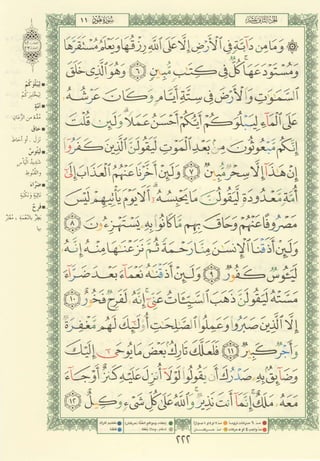 الجزء الثاني عشر
سورة هود
١١
۞ وَمَا مِن دَآبَّةٍ فِى ٱلْأَرْضِ إِلَّا عَلَى ٱللَّهِ رِزْقُهَا وَيَعْلَمُ مُسْتَقَرَّهَا
وَمُسْتَوْدَعَهَا ۚ كُلٌّ فِى كِتَٰبٍ مُّبِينٍ ٦ وَهُوَ ٱلَّذِى خَلَقَ
ٱلسَّمَٰوَٰتِ وَٱلْأَرْضَ فِى سِتَّةِ أَيَّامٍ وَكَانَ عَرْشُهُۥ
عَلَى ٱلْمَآءِ لِيَبْلُوَكُمْ أَيُّكُمْ أَحْسَنُ عَمَلًا ۗ وَلَئِن قُلْتَ
إِنَّكُم مَّبْعُوثُونَ مِنۢ بَعْدِ ٱلْمَوْتِ لَيَقُولَنَّ ٱلَّذِينَ كَفَرُوٓا۟
إِنْ هَٰذَآ إِلَّا سِحْرٌ مُّبِينٌ ٧ وَلَئِنْ أَخَّرْنَا عَنْهُمُ ٱلْعَذَابَ إِلَىٰٓ
أُمَّةٍ مَّعْدُودَةٍ لَّيَقُولُنَّ مَا يَحْبِسُهُۥٓ ۗ أَلَا يَوْمَ يَأْتِيهِمْ لَيْسَ
مَصْرُوفًا عَنْهُمْ وَحَاقَ بِهِم مَّا كَانُوا۟ بِهِۦ يَسْتَهْزِءُونَ ٨
وَلَئِنْ أَذَقْنَا ٱلْإِنسَٰنَ مِنَّا رَحْمَةً ثُمَّ نَزَعْنَٰهَا مِنْهُ إِنَّهُۥ
لَيَـُٔوسٌ كَفُورٌ ٩ وَلَئِنْ أَذَقْنَٰهُ نَعْمَآءَ بَعْدَ ضَرَّآءَ
مَسَّتْهُ لَيَقُولَنَّ ذَهَبَ ٱلسَّيِّـَٔاتُ عَنِّىٓ ۚ إِنَّهُۥ لَفَرِحٌ فَخُورٌ ١٠
إِلَّا ٱلَّذِينَ صَبَرُوا۟ وَعَمِلُوا۟ ٱلصَّٰلِحَٰتِ أُو۟لَٰٓئِكَ لَهُم مَّغْفِرَةٌ
وَأَجْرٌ كَبِيرٌ ١١ فَلَعَلَّكَ تَارِكٌۢ بَعْضَ مَا يُوحَىٰٓ إِلَيْكَ
وَضَآئِقٌۢ بِهِۦ صَدْرُكَ أَن يَقُولُوا۟ لَوْلَآ أُنزِلَ عَلَيْهِ كَنزٌ أَوْ جَآءَ
مَعَهُۥ مَلَكٌ ۚ إِنَّمَآ أَنتَ نَذِيرٌ ۚ وَٱللَّهُ عَلَىٰ كُلِّ شَىْءٍ وَكِيلٌ ١٢
لِيَبْلُوَكُمْ
ليختبركم
أُمَّةٍ
حَاقَ
لَيَـُٔوسٌ
ضَرَّآءَ
لَفَرِحٌ
٢٢٢